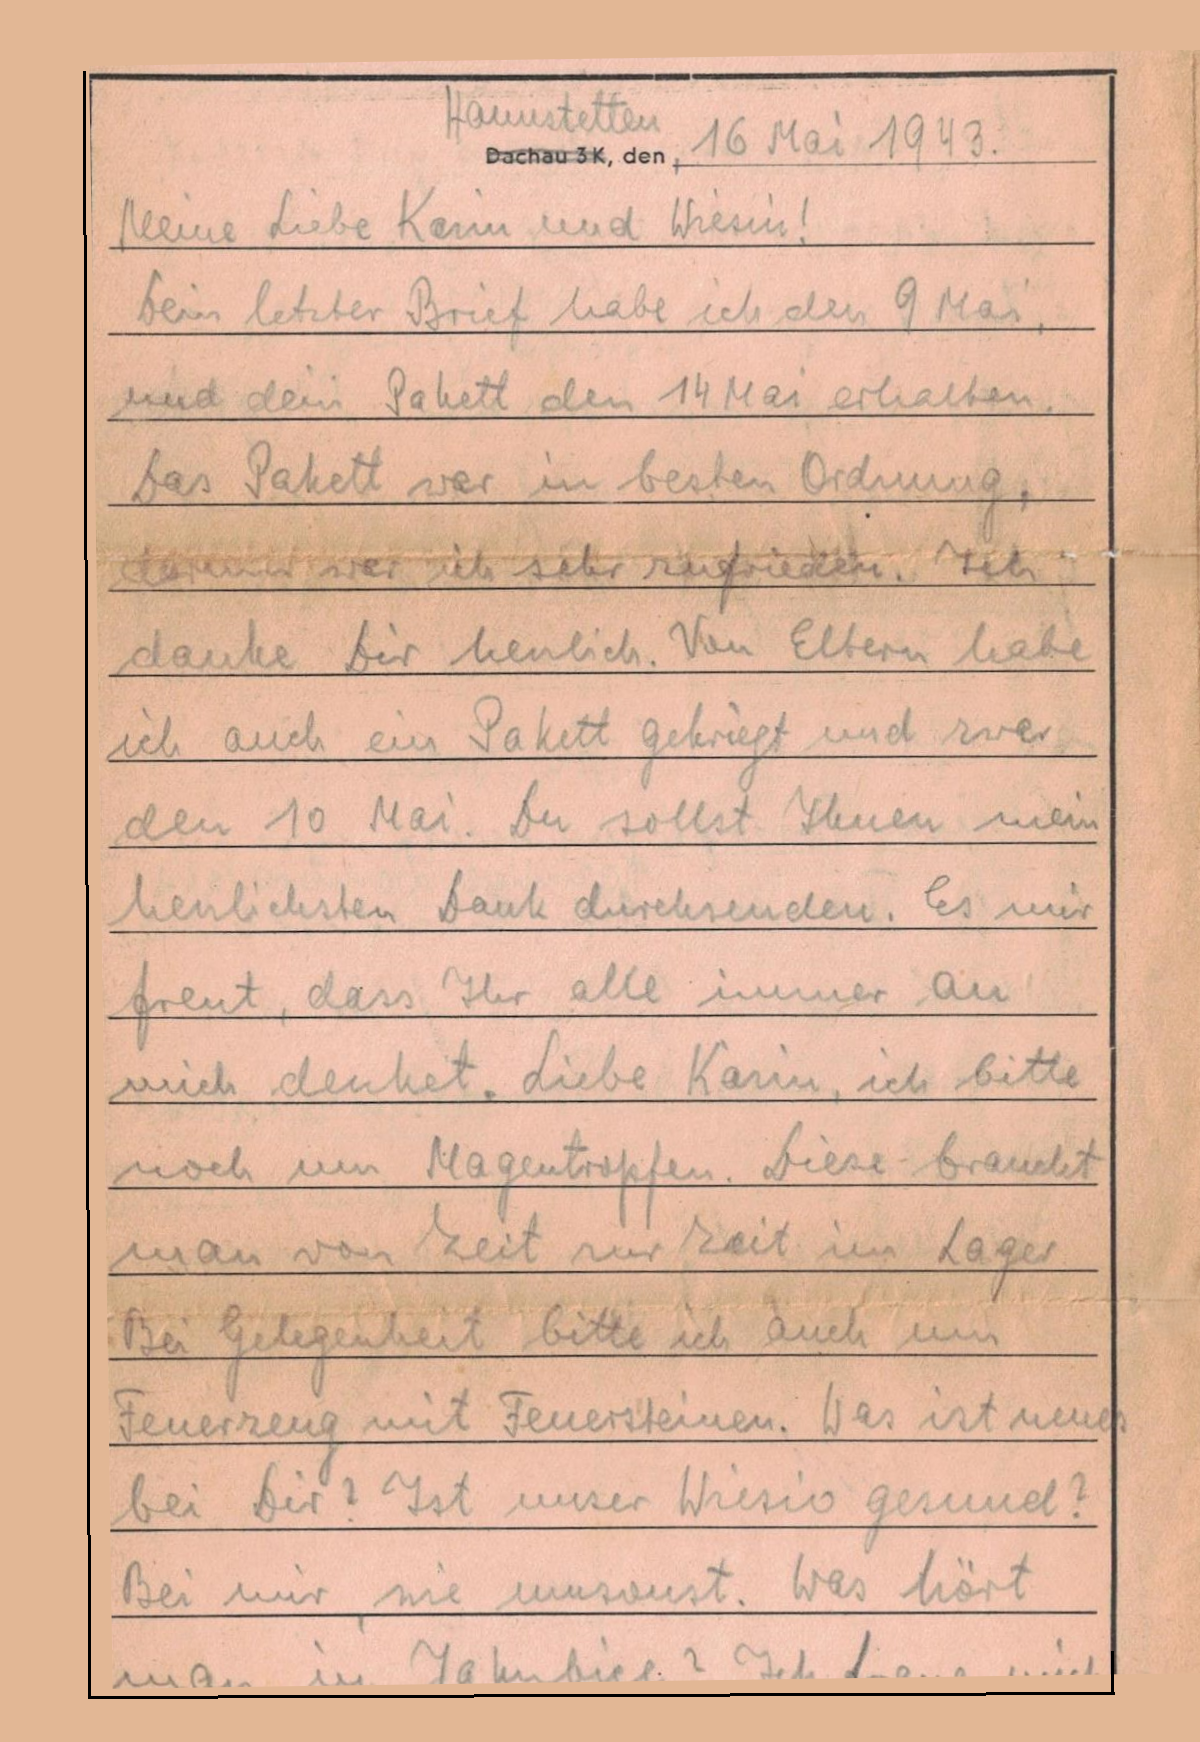 Haunstetten
Dachau 3K, den, 16 Mai 1943.
Meine Liebe Karin und Wiesin!
Dein letzter Brief habe ich den 9 Mai,
und dein Pakett den 14 Mai erhalten.
Das Pakett war in besten Ordnung,
darum war ich sehr zufrieden. Ich
danke Dir herzlich. Von Eltern habe
ich auch ein Pakett gekriegt und zwar
den 10 Mai. Du sollst Ihnen mein
herzlichsten Dank durchsenden. Es mir
freut, dass Ihr alle immer an
mich denket. Liebe Karin, ich bitte
noch um Magentropfen. Diese braucht
man von Zeit zur Zeit im Lager
Bei Gelegenheit bitte ich auch um
Feuerzeug mit Feuersteinen. Was ist neues
bei Dir? Ist unser Wiesio gesund?
Bei mir, nie umsonst. Was hört
man in ? Ich mich